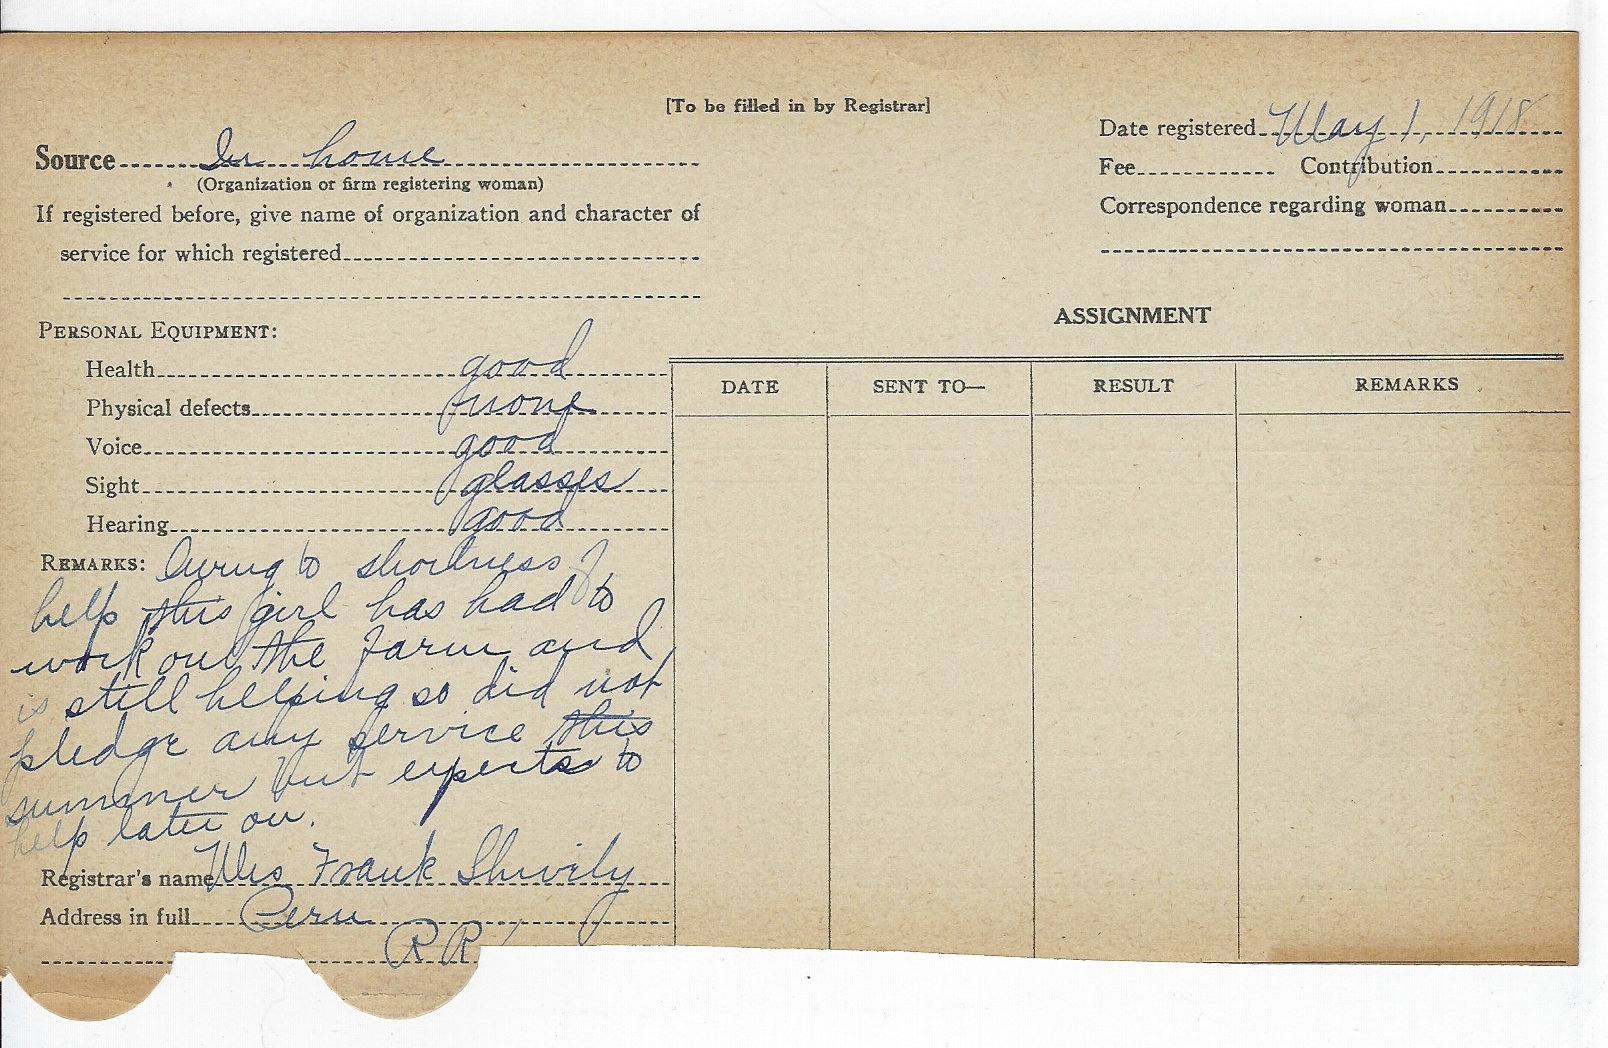 [To be filled in by Registrar]
Source In home
(Organization or firm registering woman)
If registered before, give name of organization and character of
service for which registered
Date registered May 1, 1918
Fee Contribution
Correspondence regarding woman
PERSONAL EQUIPMENT:
Health good
Physical defects none
Voice good
Sight glasses
Hearing good
REMARKS: Owing to shortness of
help this girl has had to
work out the farm and
is still helping so did not
pledge any service this
summer but expects to
help later on.
Registrar's name Mrs Frank Shively
Address in full Peru
RR
ASSIGNMENT
DATE SENT TO— RESULT REMARKS